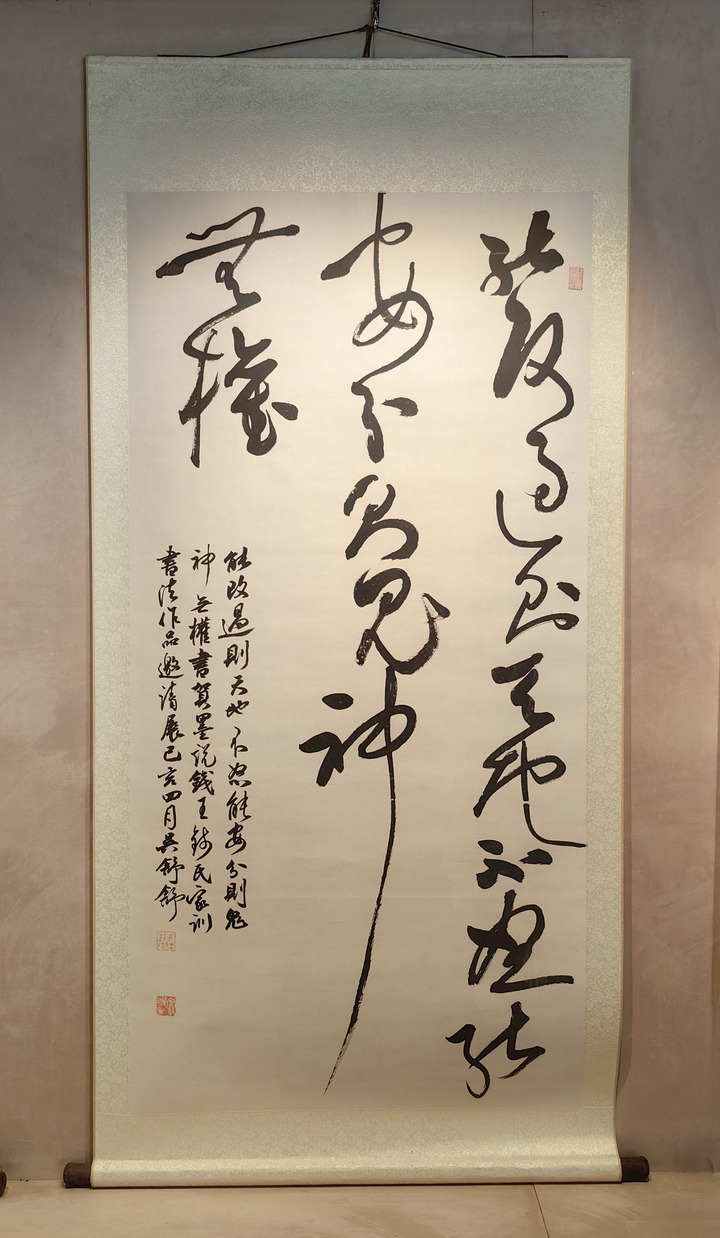 能改過則天地不怒能
安分則鬼神
無權
能改過則天地不怒能安分則鬼
神無權書賀墨說錢王錢氏家訓
書法作品邀請展己亥四月吳舒舒